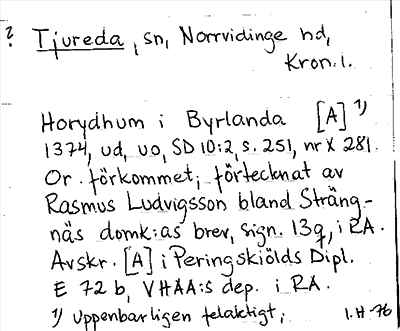 ? Tjureda, sn, Norrvidinge hd,
Kron. l.
Horydhum i Byrlanda [A] 1)
1374, ud, uo, SD 10:2, s. 251, nr X 281.
Or. förkommet; förtecknat av
Rasmus Ludvigsson bland Sträng-
näs domk:as brev, sign. 13q, i RA.
Avskr. [A] i Peringskiölds Dipl.
E 72 b, VHAA:s dep. i RA.
1) Uppenbarligen felaktigt; I.H-76